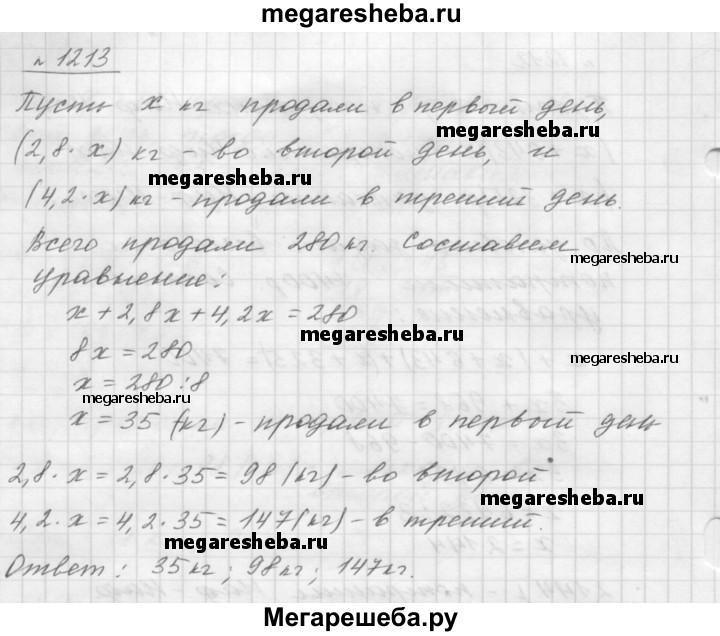 megaresheba.ru
№ 1213
Пусть x кг продали в первый день,
megaresheba.ru
(2,8·x) кг - во второй день, и
megaresheba.ru
(4,2·x) кг - продали в третий день.
Всего продали 280 кг. Составим
megaresheba.ru
уравнение:
x + 2,8x + 4,2x = 280
megaresheba.ru
8x = 280
x = 280 : 8
megaresheba.ru
x = 35 (кг) - продали в первый день
2,8·x = 2,8·35 = 98 (кг) - во второй
megaresheba.ru
4,2·x = 4,2·35 = 147 (кг) - в третий.
megaresheba.ru
Ответ: 35 кг; 98 кг; 147 кг.
Мегарешеба.ру